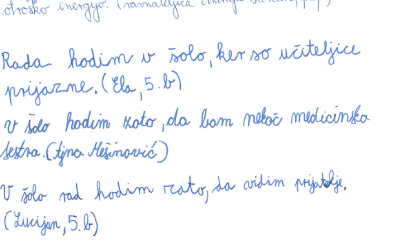 otroško energijo.
Rada hodim v šolo, ker so učiteljice
prijazne. (Ela, 5. b)
V šolo hodim zato, da bom nekoč medicinska
sestra. (Ajna Mešinović)
V šolo rad hodim zato, da vidim prijatelje.
(Lucijan, 5. b)